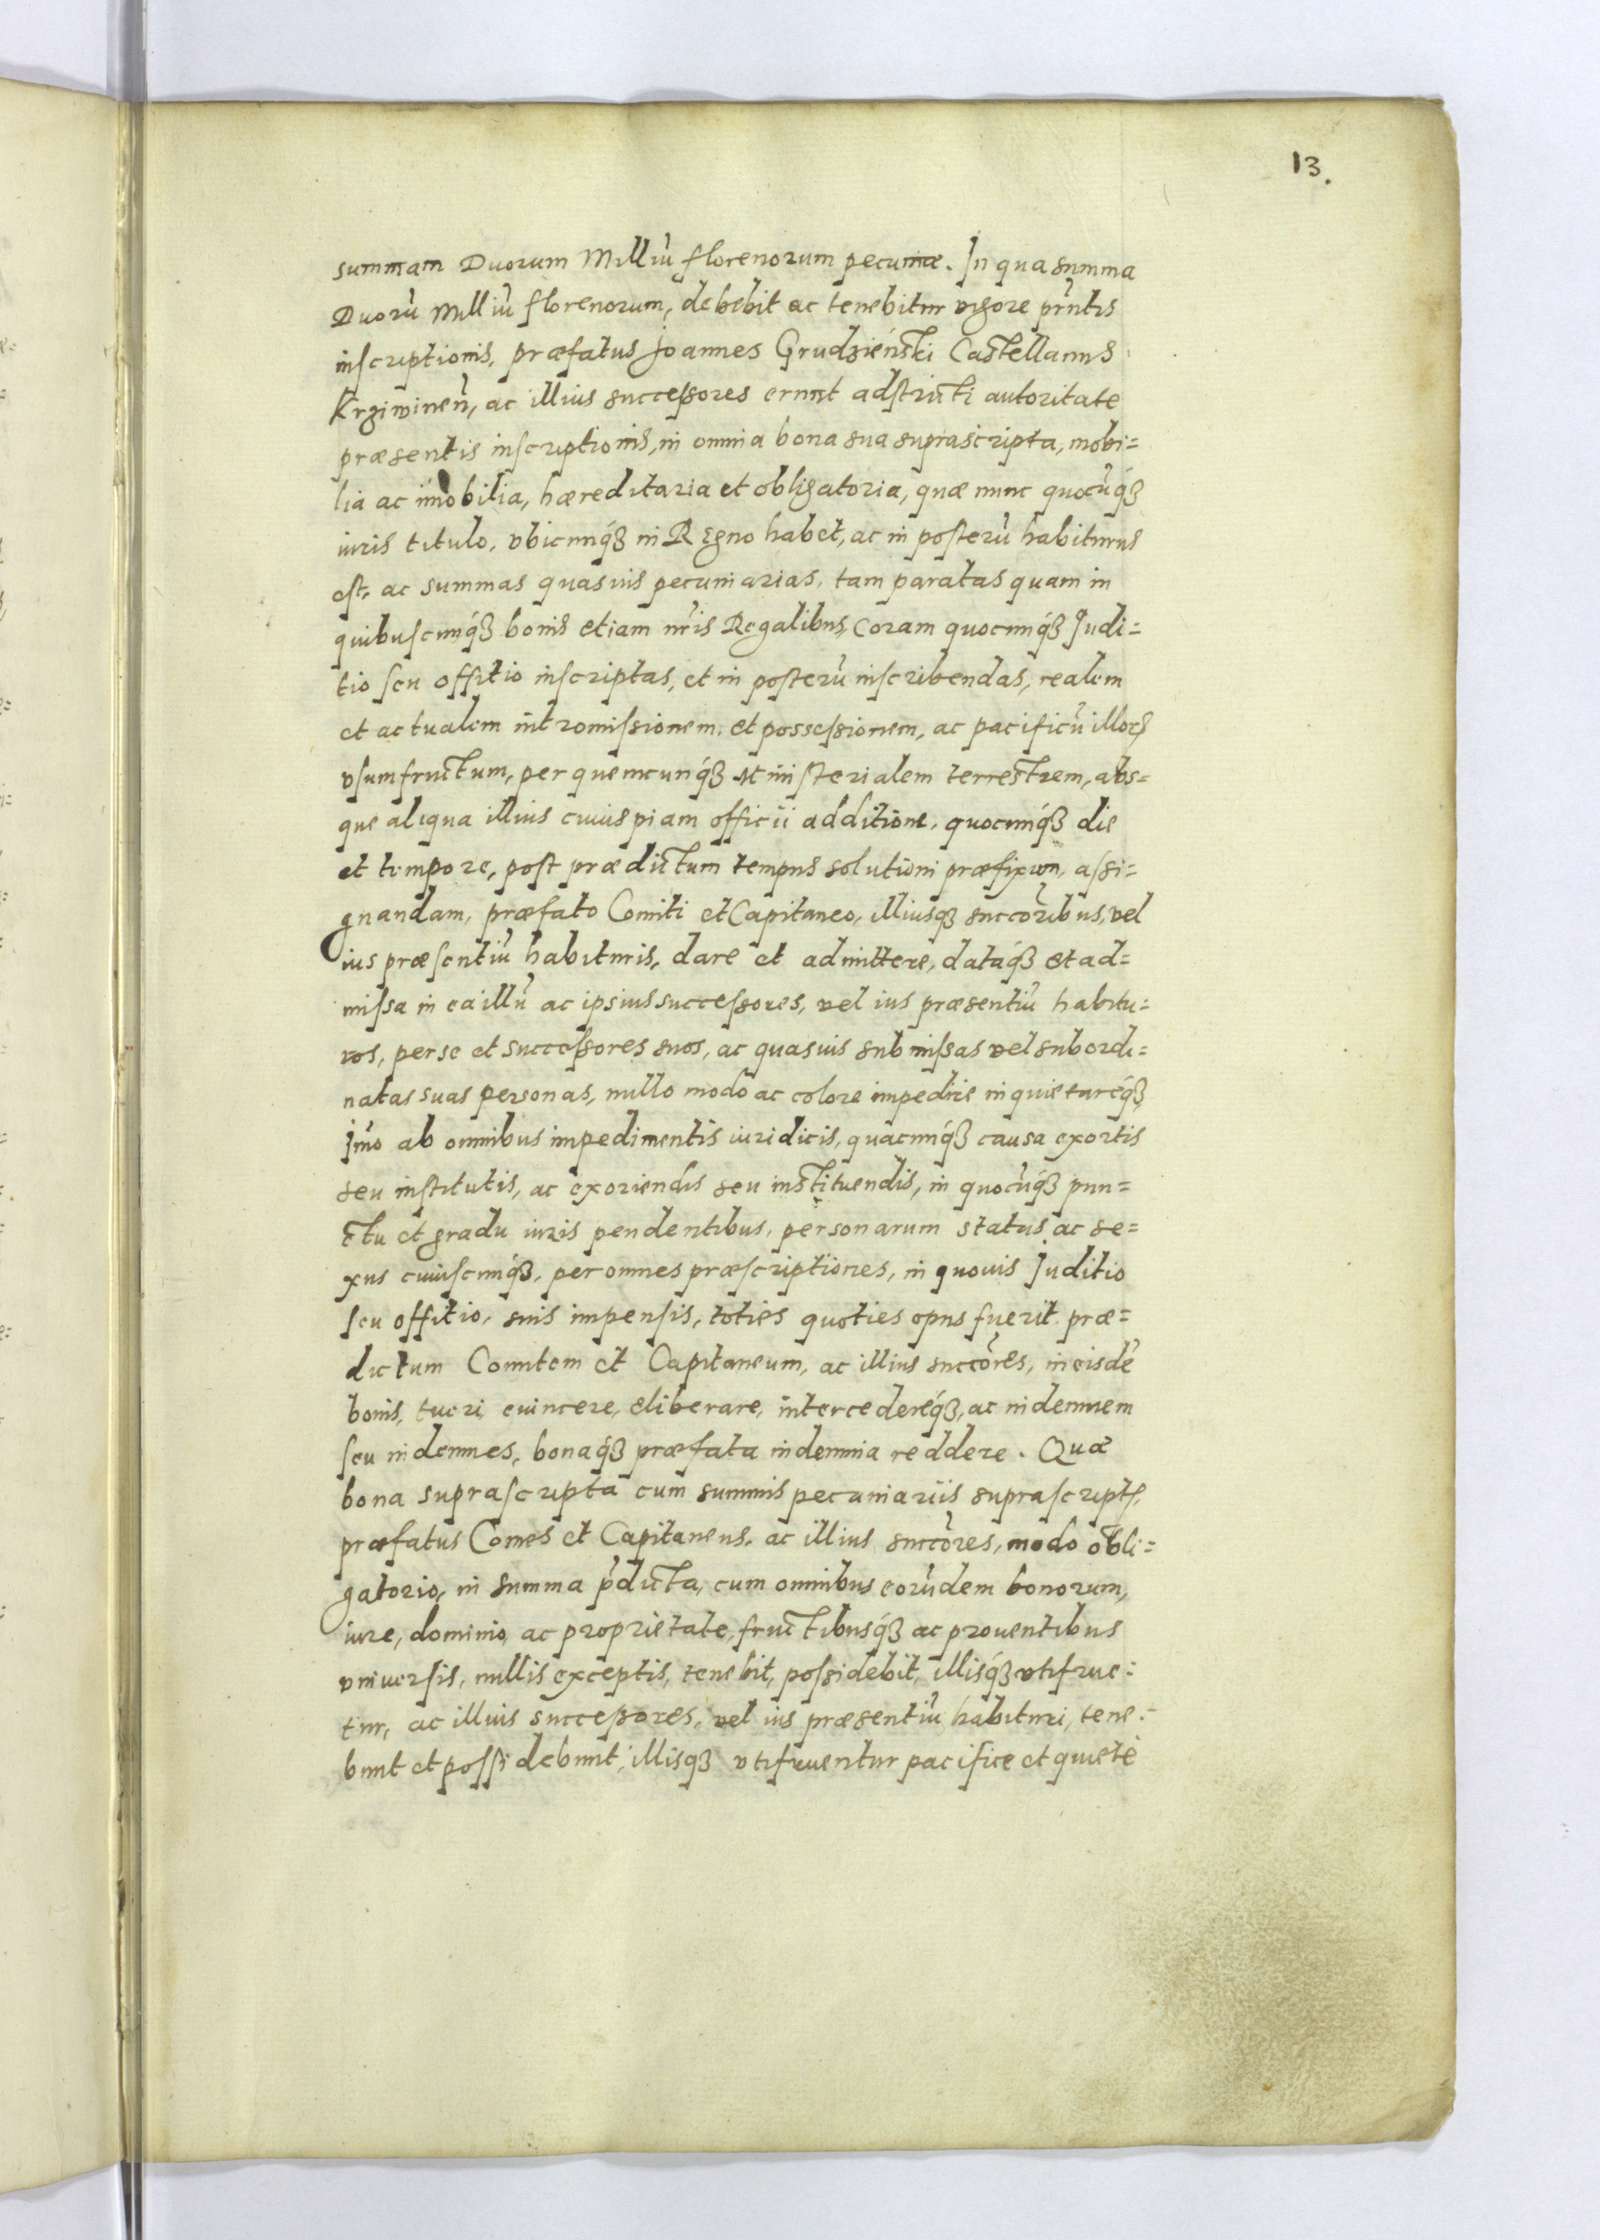 13.
summam Duorum Milliũ florenorum pecuniæ. In qua summa
Duorũ Milliũ florenorum, debebit ac tenebitur vigore pr̃ntis
inscriptionis, præfatus Joannes Grudzieński Castellanus
Krziwineñ, ac illius successores erunt adstricti autoritate
præsentis inscriptionis, in omnia bona sua suprascripta, mobi=
lia ac im̃obilia, hæreditaria et obligatoria, quæ nunc quocũq́ꝫ
iuris titulo, vbicunq́ꝫ in Regno habet, ac in posterũ habiturus
est, ac summas quasuis pecuniarias, tam paratas quam in
quibuscunq́ꝫ bonis etiam nr̃is Regalibus, coram quocunq́ꝫ Judi=
tio seu offitio inscriptas, et in posterũ inscribendas, realem
et actualem intromissionem, et possessionem, ac pacificũ illorꝫ
vsumfructum, per quemcunq́ꝫ Ministerialem terrestrem, abs=
que aliqua illius cuiuspiam officii additione, quocunq́ꝫ die
et tempore, post prædictum tempus solutioni præfixum, assi=
gnandam, præfato Comiti et Capitaneo, illiusqꝫ succõribus, vel
ius præsentiũ habituris, dare et admittere, dataq́ꝫ et ad=
missa in ea illũ ac ipsius successores, vel ius præsentiũ habitu=
ros, per se et successores suos, ac quasuis submissas vel subordi=
natas suas personas, nullo modo ac colore impedire inquietareq́ꝫ,
Im̃o ab omnibus impedimentis iuridicis, quacunq́ꝫ causa exortis
seu institutis, ac exoriendis seu instituendis, in quocũq́ꝫ pun=
ctu et gradu iuris pendentibus, personarum status, ac se=
xus cuiuscunq́ꝫ, per omnes præscriptiones, in quouis Juditio
seu offitio, suis impensis, toties quoties opus fuerit, præ=
dictum Comitem et Capitaneum, ac illius succõres, in eisdẽ
bonis, tueri, euincere, eliberare, intercedereq́ꝫ, ac indemnem
seu indemnes, bonaq́ꝫ præfata indemnia reddere. Quæ
bona suprascripta cum summis pecuniariis suprascriptꝭ,
præfatus Comes et Capitaneus, ac illius succõres, modo obli=
gatorio, in summa p̃dicta, cum omnibus eorũdem bonorum,
iure, dominio, ac proprietate, fructibusq́ꝫ ac prouentibus
vniuersis, nullis exceptis, tenebit, possidebit, illisq́ꝫ vtifrue=
tur, ac illius successores, vel ius præsentiũ habituri, tene=
bunt et possidebunt, illisqꝫ vtifruentur pacifice et quietè